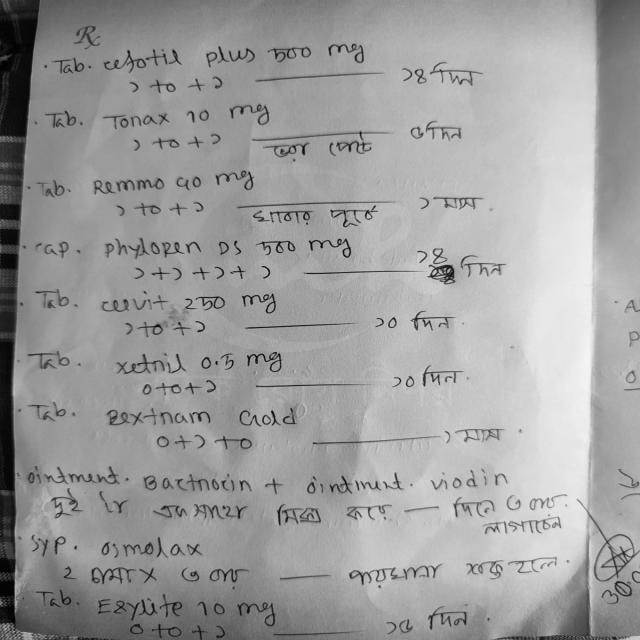 Rx
Tab. cefotil plus 500 mg
১+০+১ ——— ১৪ দিন
Tab. Tonax 10 mg
১+০+১ ——— ৫ দিন
ভরা পেটে
Tab. Remmo 20 mg
১+০+১ ——— ১ মাস
খাবার পূর্বে
cap. phylopen DS 500 mg
১+১+১+১ ——— ১৪ দিন
Tab. cervit 250 mg
১+০+১ ——— ১০ দিন
Tab. xetnil 0.5 mg
০+০+১ ——— ১০ দিন
Tab. Bextram Gold
০+১+০ ——— ১ মাস
ointment. Bactrocin + ointment. viodin
দুই টা একসাথে মিক্স করে — দিনে ৩ বার
লাগাবেন
Syp. osmolax
২ চামচ X ৩ বার — পায়খানা শক্ত হলে.
Tab. Ezylite 10 mg
০+০+১ ——— ১৫ দিন